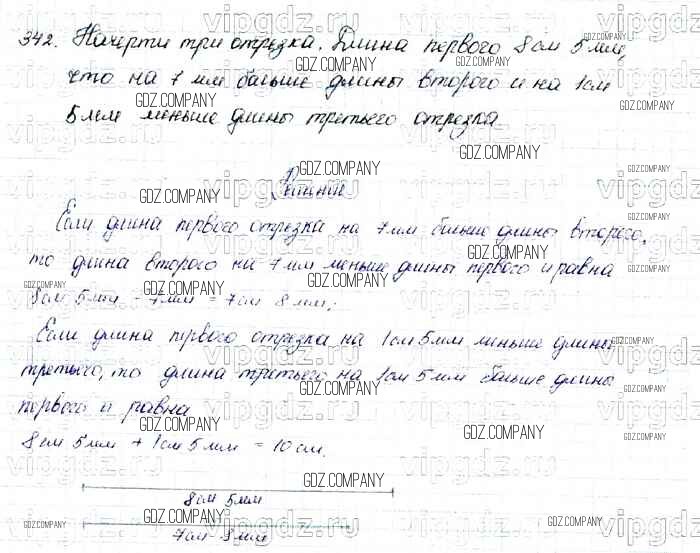 342. Начерти три отрезка. Длина первого 8 см 5 мм,
что на 7 мм больше длины второго и на 1 см
5 мм меньше длины третьего отрезка
Решение
Если длина первого отрезка на 7 мм больше длины второго,
то длина второго на 7 мм меньше длины первого и равна
8 см 5 мм - 7 мм = 7 см 8 мм;
Если длина первого отрезка на 1 см 5 мм меньше длины
третьего, то длина третьего на 1 см 5 мм больше длины
первого и равна
8 см 5 мм + 1 см 5 мм = 10 см.
8 см 5 мм
7 см 8 мм
GDZ.COMPANY
vipgdz.ru